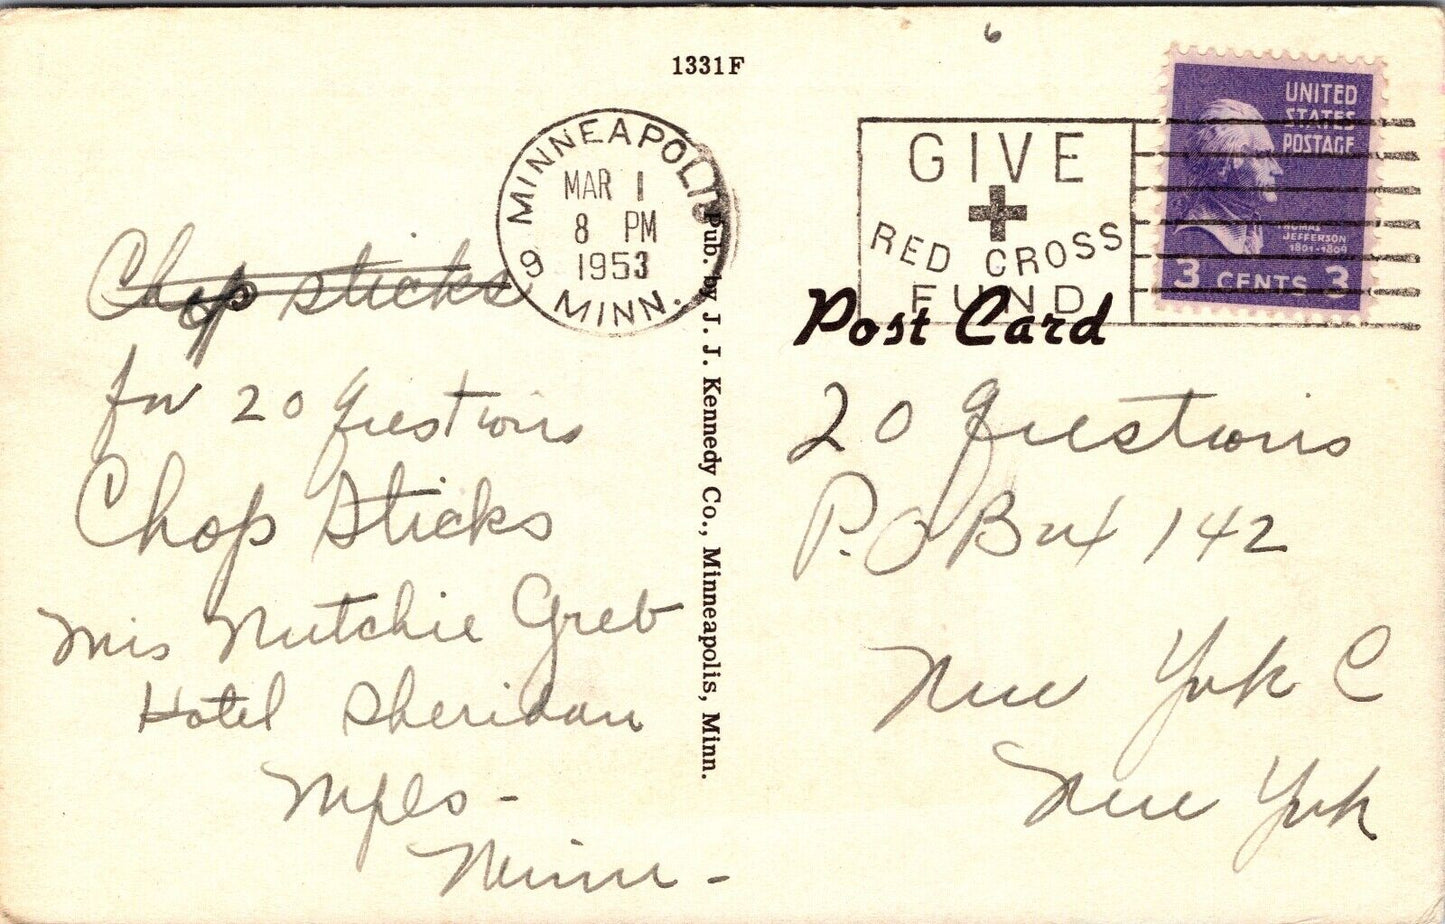 6
1331F
MINNEAPOLIS
MAR 1
8 PM
1953
9
MINN.
GIVE
RED CROSS
FUND
UNITED
STATES
POSTAGE
THOMAS
JEFFERSON
1801-1809
3 CENTS 3
Post Card
Chop sticks
for 20 Questions
Chop Sticks
Mrs Nutchie Greb
Hotel Sheridan
Mpls -
Minn -
Pub. by J. J. Kennedy Co., Minneapolis, Minn.
20 Questions
P.O Box 142
New York C
New York